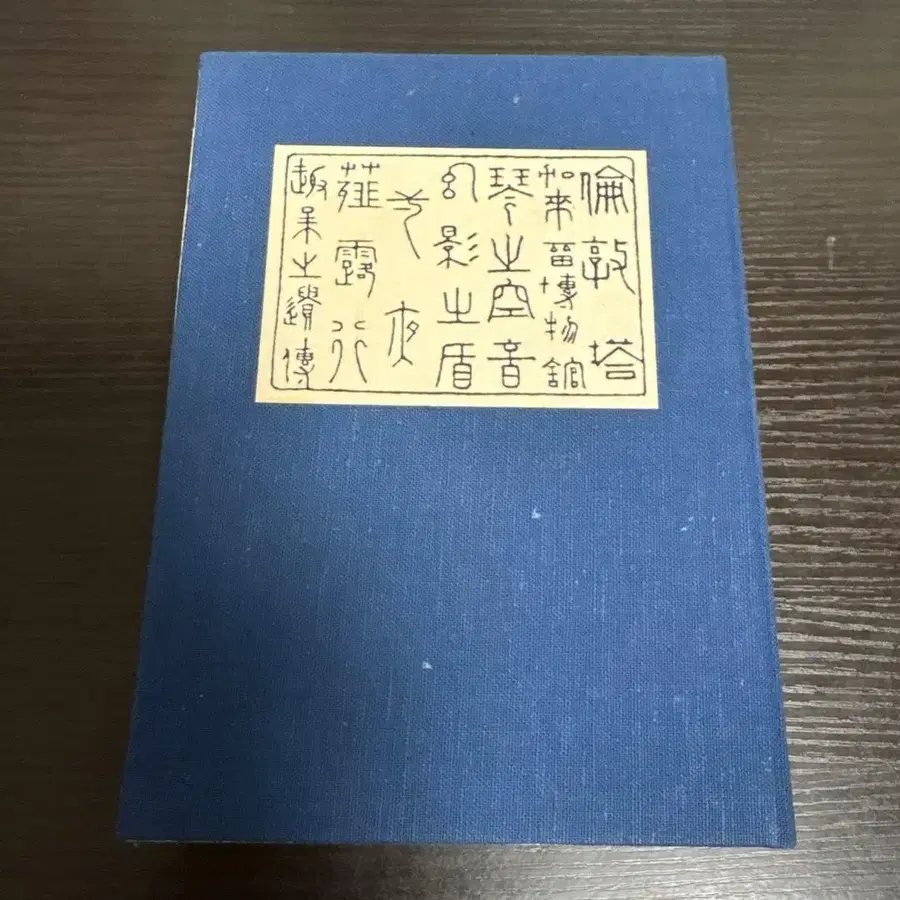 倫敦塔
加来留博物館
琴之空音
幻影之盾
弌夜
薤露行
趣味之遺傳